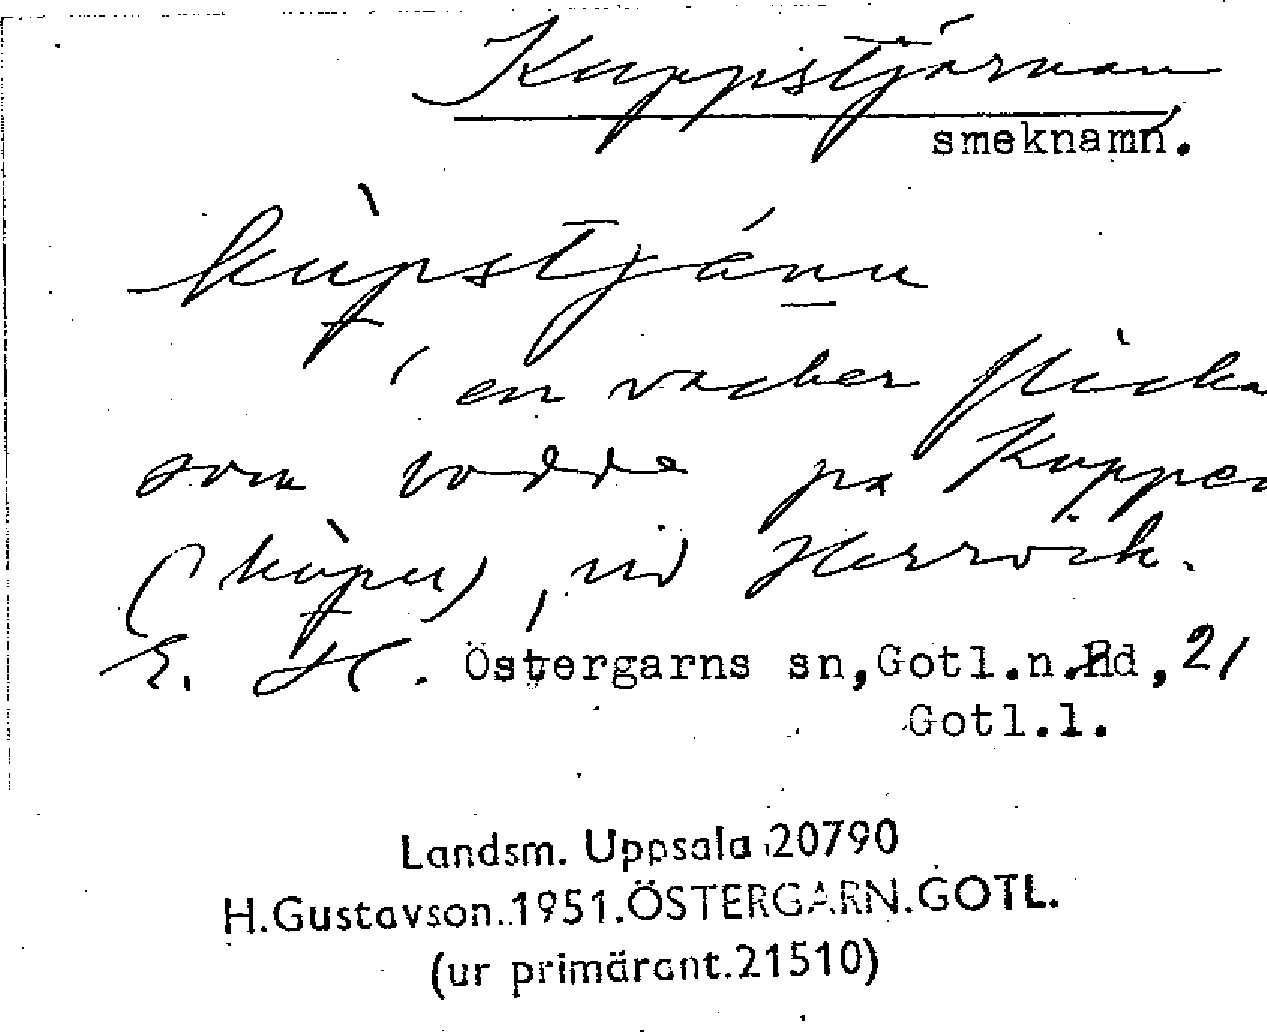 Kuppstjärnan
smeknamn.
kùpstjánu
en vacker flicka
som bodde på Kuppen
(kùpu), vid Herrvik.
E. H. Östergarns sn, Gotl.n.Rd, 21
Gotl.l.
Landsm. Uppsala 20790
H.Gustavson.1951.ÖSTERGARN.GOTL.
(ur primärant.21510)